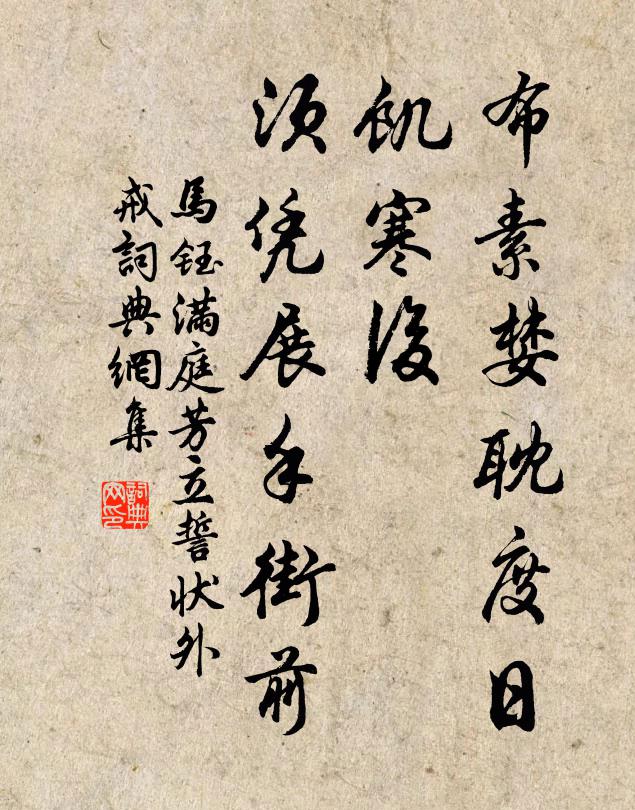 布素婪耽度日
飢寒後
須凭展手街前
馬鈺滿庭芳立誓狀外
戒詞典網集
詞典网印